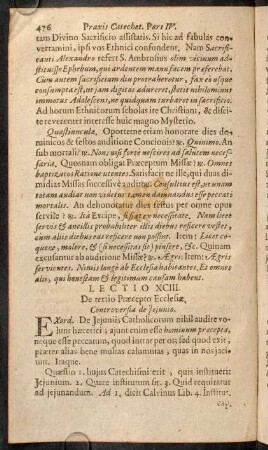 476 Praxis Catechet. Pars IV.
tam Divino Sacrificio assistaris. Si hic ad fabulas con-
vertamini, ipsi vos Ethnici confundent. Nam Sacrifi-
canti Alexandro refert S. Ambrosius olim vicinum ad-
stitisse Ephebum, qui ardentem manu facem præferebat.
Cum autem sacrificium diu protraheretur, fax eousque
consumpta est, ut jam digitos adureret, stetit nihilominus
immotus Adolescens, ne quidquam turbaret in sacrificio.
Ad horum Ethnicorum scholas ite Christiani, & disci-
te reverenter interesse huic magno Mysterio.
Quæstiuncula. Oportetne etiam honorare dies do-
minicos & festos auditione Concionis? R. Omnino. An
sub mortali? R. Non, nisi foret necesse ad salutem necessi-
saria. Quosnam obligat Præceptum Missæ? R. Omnes
baptizatos Ratione utentes. Satisfacit ne ille, qui duas di-
midias Missas successive auditur. Consultius est, ut unam
totam audiat non videtur tamen damnandus esse peccati
mortalis. An dehonorantur dies festus per omne opus
servile? R. Ita Excipe, si fiat ex necessitate. Nam licet
servis & ancillis probabiliter illis diebus reficere vestes,
cum aliis diebus eas reficere non possint. Item: Licet co-
quere, molere, & (si necessitas sit) pinsere, &c. Quinam
excusantur ab auditione Missæ? R. Ægri: Item: Ægris
servientes. Nimis longe ab Ecclesia habitantes, Et omnes
alii, qui honestam & legitimam causam habent.
LECTIO XCIII.
De tertio Præcepto Ecclesiæ,
Controversia de Jejunio.
Exord. De Jejuniis Catholicorum nihil audire vo-
lunt hæretici; ajunt enim esse hominum præcepta,
neque esse peccatum, quod intrat per os, sed quod exit,
præter alias bene multas calumnias, quas in nos jaci-
unt. Itaque.
Quæstio 1. hujus Catechismi erit, quis instituerit
Jejunium. 2. Quare institutum sit. 3. Quid requiratur
ad jejunandum. Ad 1. dicit Calvinus Lib. 4. Institut.
cap.